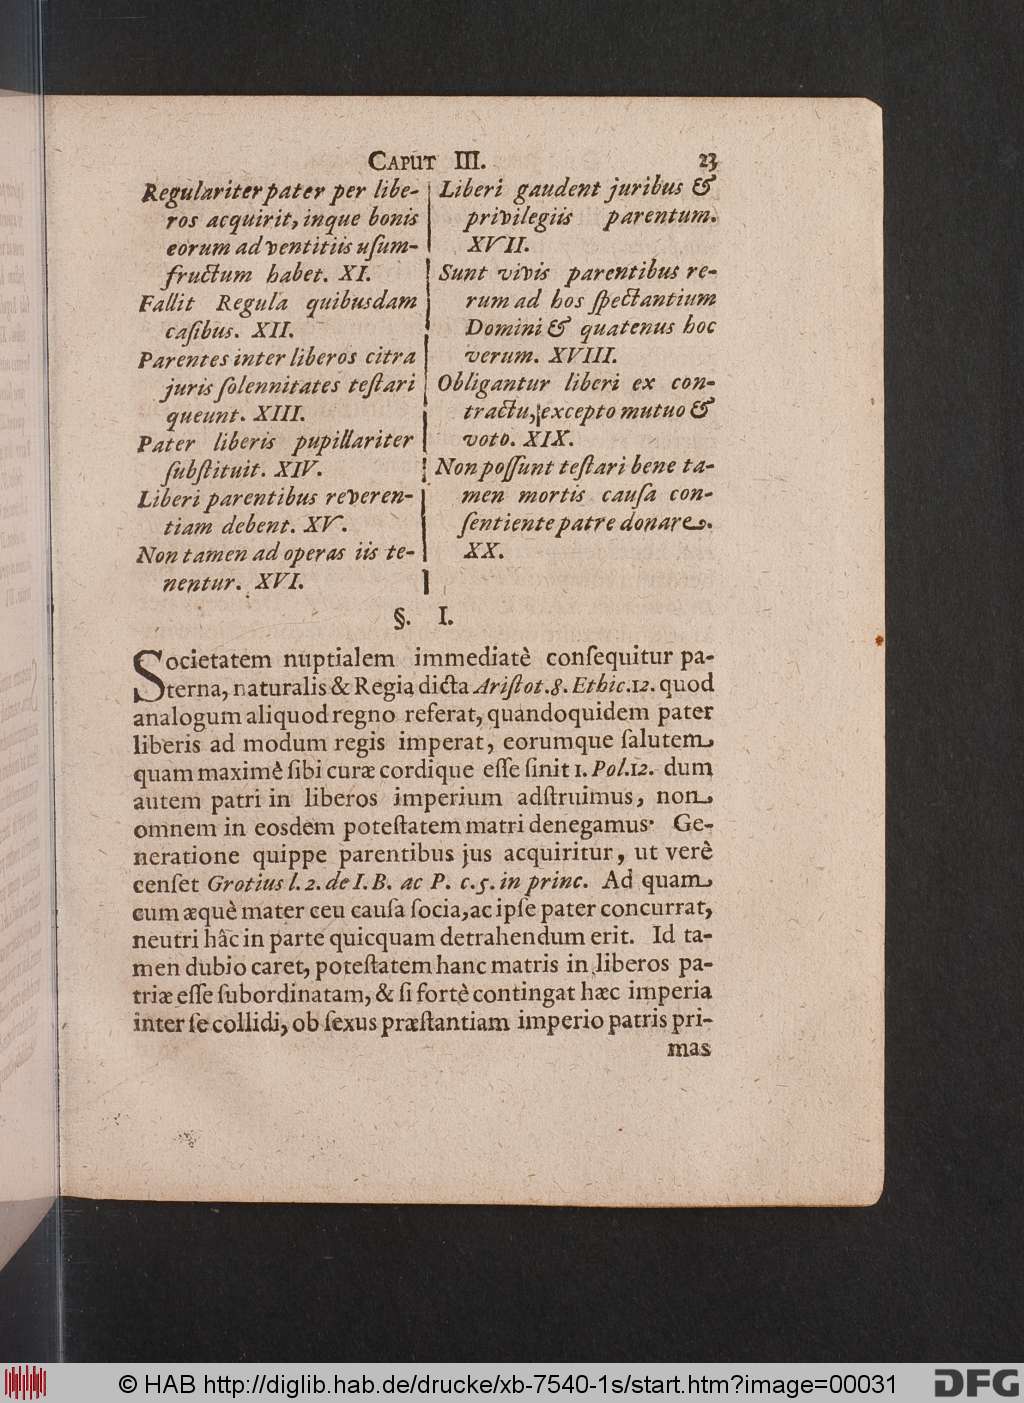 CAPUT III. 23
Regulariter pater per libe-
ros acquirit, inque bonis
eorum adventitiis uſum-
fructum habet. XI.
Fallit Regula quibusdam
caſibus. XII.
Parentes inter liberos citra
juris ſolennitates teſtari
queunt. XIII.
Pater liberis pupillariter
ſubſtituit. XIV.
Liberi parentibus reveren-
tiam debent. XV.
Non tamen ad operas iis te-
nentur. XVI.
Liberi gaudent juribus &
privilegiis parentum.
XVII.
Sunt vivis parentibus re-
rum ad hos ſpectantium
Domini & quatenus hoc
verum. XVIII.
Obligantur liberi ex con-
tractu, excepto mutuo &
voto. XIX.
Non poſſunt teſtari bene ta-
men mortis cauſa con-
ſentiente patre donare.
XX.
§. I.
Societatem nuptialem immediatè conſequitur pa-
terna, naturalis & Regia dicta Ariſtot. 8. Ethic. 12. quod
analogum aliquod regno referat, quandoquidem pater
liberis ad modum regis imperat, eorumque ſalutem
quam maximè ſibi curæ cordique eſſe ſinit 1. Pol. 12. dum
autem patri in liberos imperium adſtruimus, non
omnem in eosdem poteſtatem matri denegamus· Ge-
neratione quippe parentibus jus acquiritur, ut verè
cenſet Grotius l. 2. de I. B. ac P. c. 5. in princ. Ad quam
cum æquè mater ceu cauſa ſocia, ac ipſe pater concurrat,
neutri hâc in parte quicquam detrahendum erit. Id ta-
men dubio caret, poteſtatem hanc matris in liberos pa-
triæ eſſe ſubordinatam, & ſi fortè contingat hæc imperia
inter ſe collidi, ob ſexus præſtantiam imperio patris pri-
mas
© HAB http://diglib.hab.de/drucke/xb-7540-1s/start.htm?image=00031
DFG